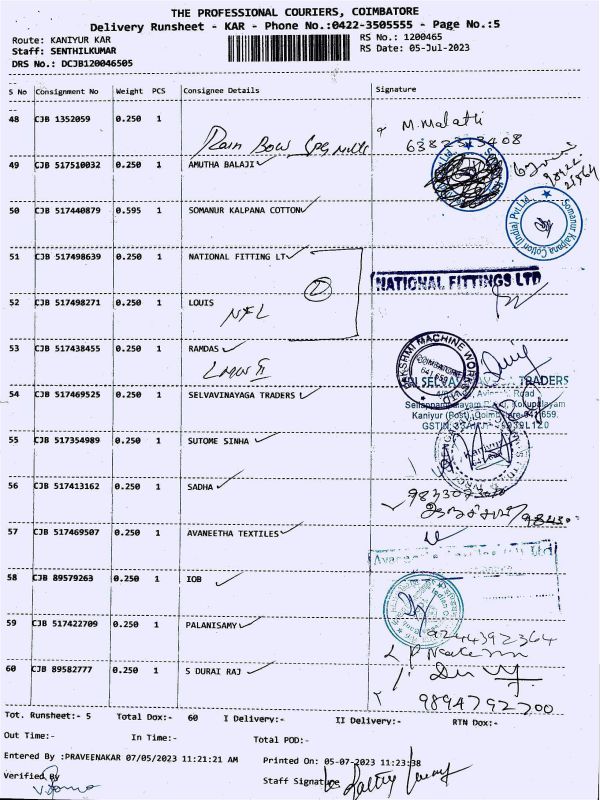 THE PROFESSIONAL COURIERS, COIMBATORE
Delivery Runsheet - KAR - Phone No.:0422-3505555 - Page No.:5
Route: KANIYUR KAR
RS No.: 1200465
Staff: SENTHILKUMAR
RS Date: 05-Jul-2023
DRS No.: DCJB120046505
S No Consignment No Weight PCS Consignee Details Signature
48 CJB 1352059 0.250 1
M. Malathi
Rain Bow
49 CJB 517510032 0.250 1 AMUTHA BALAJI
50 CJB 517440879 0.595 1 SOMANUR KALPANA COTTON
Somanur Kalpana Cotton (India) Pvt Ltd
51 CJB 517498639 0.250 1 NATIONAL FITTING LT
2
NATIONAL FITTINGS LTD
52 CJB 517498271 0.250 1 LOUIS
NFL
53 CJB 517438455 0.250 1 RAMDAS
LAKSHMI MACHINE WORKS
COIMBATORE
641 659
LMW II
TRADERS
54 CJB 517469525 0.250 1 SELVAVINAYAGA TRADERS
Road
Kaniyur (Post), 659.
55 CJB 517354989 0.250 1 SUTOME SINHA
Kaniyur
56 CJB 517413162 0.250 1 SADHA
57 CJB 517469507 0.250 1 AVANEETHA TEXTILES
58 CJB 89579263 0.250 1 IOB
59 CJB 517422709 0.250 1 PALANISAMY
9244392364
60 CJB 89582777 0.250 1 S DURAI RAJ
9894792700
Tot. Runsheet:- 5 Total Dox:- 60 I Delivery:- II Delivery:- RTN Dox:-
Out Time:- In Time:- Total POD:-
Entered By :PRAVEENAKAR 07/05/2023 11:21:21 AM Printed On: 05-07-2023 11:23:38
Verified By
Staff Signature